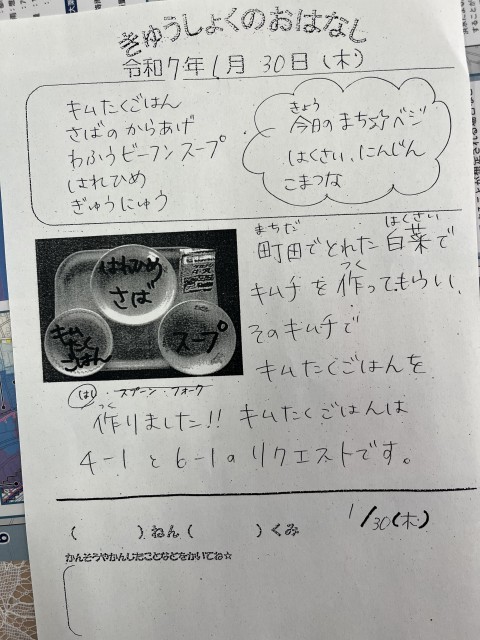 きゅうしょくのおはなし
令和7年1月30日(木)
キムたくごはん
さばのからあげ
わふうビーフンスープ
はれひめ
ぎゅうにゅう
きょう
今日のまち☆ベジ
はくさい、にんじん
こまつな
はれひめ
さば
キムたくごはん
スープ
はし・スプーン・フォーク
まちだ はくさい
町田でとれた白菜で
つく
キムチを作ってもらい、
そのキムチで
キムたくごはんを
つく
作りました!! キムたくごはんは
4-1と6-1のリクエストです。
( )ねん( )くみ 1/30(木)
かんそうやかんじたことなどをかいてね☆